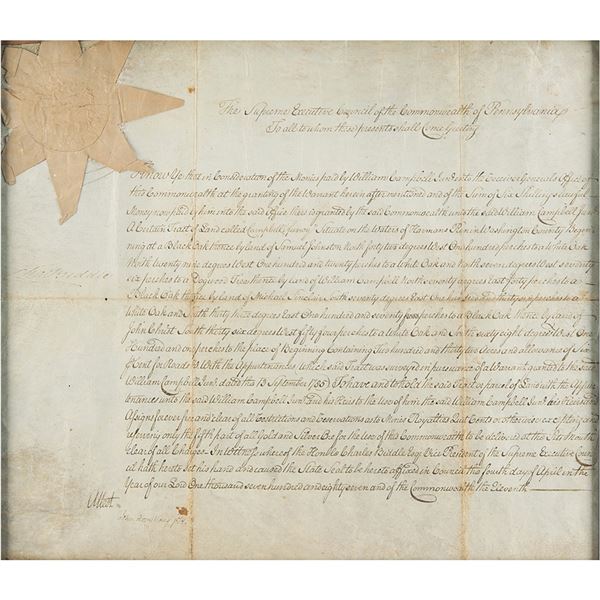 The Supreme Executive Council of the Commonwealth of Pennsylvania
To all to whom these presents shall Come Greeting
Know Ye that in Consideration of the Monies paid by William Campbell Junr. into the Receiver Generals Office of
this Commonwealth at the granting of the Warrant herein after mentioned and of the Sum of Six Shillings lawful
Money now paid by him into the said Office there is granted by the said Commonwealth unto the said William Campbell Junr.
A Certain Tract of Land called Situate on the Waters of Harmans in Washington County Begin
ning at a Black Oak thence by Land of Samuel Johnston North forty two degrees West One hundred perches to a White Oak
North twenty nine degrees West One hundred and twenty perches to a White Oak and North seven degrees West seventy
six perches to a Dogwood Tree thence by Land of William Campbell North seventy degrees East forty perches to a
Black Oak thence by Land of Michael South seventy degrees East One hundred and thirty perches to a
White Oak and South thirty three degrees East One hundred and seventy perches to a Black Oak thence by Land of
John Christ South thirty six degrees West fifty four perches to a White Oak and South sixty eight degrees West One
hundred and one perches to the place of Beginning Containing Two hundred and thirty two Acres and allowance of Six
Cent for Roads &c With the Appurtenances which said Tract was surveyed in pursuance of a Warrant granted to the said
William Campbell Junr. dated the 13 September 1785 To have and to hold the said Tract or parcel of Land with the Appur
tenances unto the said William Campbell Junr. and his Heirs to the use of him the said William Campbell Junr. his Heirs and
Assigns forever free and clear of all Restrictions and Reservations as to Mines Royalties Quit Rents or otherwise excepting and
reserving only the fifth part of all Gold and Silver Ore for the use of this Commonwealth to be delivered at the Pits Mouth
clear of all Charges In Witness whereof the Honble Charles Biddle Esqr. Vice President of the Supreme Executive Coun
cil hath hereto set his hand and caused the State Seal to be hereto affixed in Council the fourth day of April in the
Year of our Lord One thousand seven hundred and eighty seven and of the Commonwealth the Eleventh
Chas Biddle
Attest